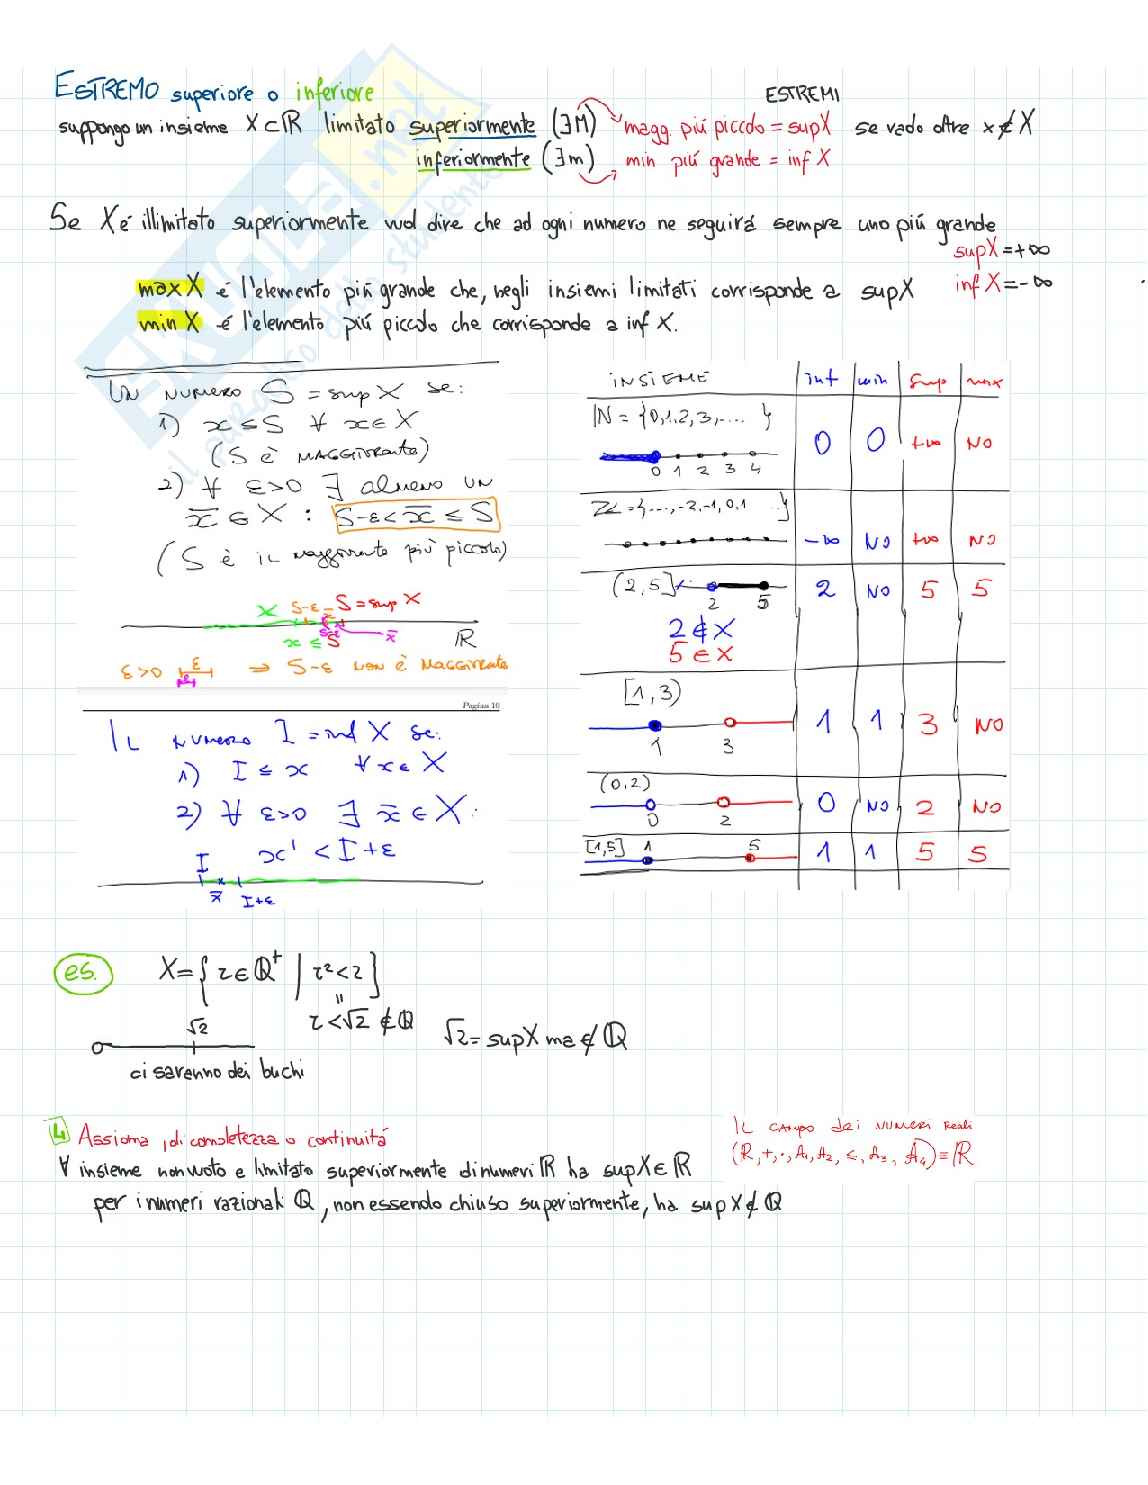 ESTREMO superiore o inferiore
ESTREMI
suppongo un insieme X⊂ℝ limitato superiormente (∃M) magg. piú piccolo = sup X se vado oltre x∉X
inferiormente (∃m) min piú grande = inf X
Se X é illimitato superiormente vuol dire che ad ogni numero ne seguirá sempre uno piú grande
sup X = +∞
inf X = -∞
max X é l'elemento piú grande che, negli insiemi limitati corrisponde a sup X
min X é l'elemento piú piccolo che corrisponde a inf X.
UN NUMERO S = sup X se:
1) x ≤ S ∀ x ∈ X
(S è MAGGIORANTE)
2) ∀ ε>0 ∃ almeno UN
x̄ ∈ X : S-ε < x̄ ≤ S
(S è IL maggiorante più piccolo)
X S-ε S = sup X
x ≤ S x̄ ℝ
ε>0 ε ⇒ S-ε NON è MAGGIORANTE
Pagina 10
IL NUMERO I = inf X se:
1) I ≤ x ∀ x ∈ X
2) ∀ ε>0 ∃ x̄ ∈ X:
x' < I+ε
I
x̄ I+ε
INSIEME inf min sup max
ℕ = {0,1,2,3,.... } 0 0 +∞ NO
0 1 2 3 4
ℤ = {...,-2,-1,0,1 ...} -∞ NO +∞ NO
(2,5] 2 NO 5 5
2 5
2 ∉ X
5 ∈ X
[1,3) 1 1 3 NO
1 3
(0,2) 0 NO 2 NO
0 2
[1,5] 1 5 1 1 5 5
es. X = { r ∈ ℚ⁺ | r² < 2 }
=
r < √2 ∉ ℚ
√2 = sup X ma ∉ ℚ
√2
ci saranno dei buchi
4 Assioma di completezza o continuitá
∀ insieme non vuoto e limitato superiormente di numeri ℝ ha sup X ∈ ℝ
per i numeri razionali ℚ, non essendo chiuso superiormente, ha sup X ∉ ℚ
IL CAMPO DEI NUMERI Reali
(ℝ, +, ·, A₁, A₂, ≤, A₃, A₄) ≡ ℝ
SKUOLA.net
il paradiso dello studente